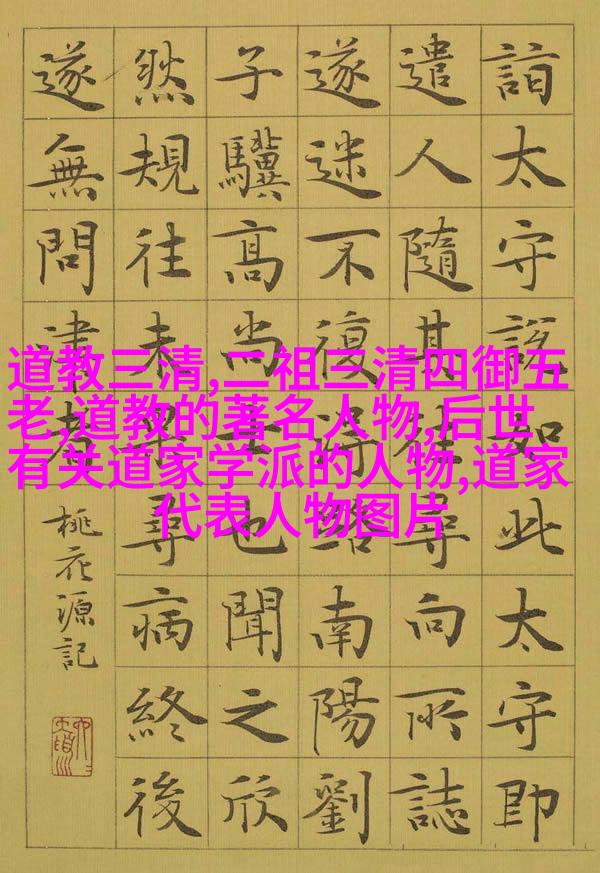 詣太守說如此太守即
遣人隨其往尋向所誌
遂迷不復得路南陽劉
子驥高尚士也聞之欣
然規往未果尋病終後
遂無問津者
桃花源記
道教三清,二祖三清四御五
老,道教的著名人物,后世
有关道家学派的人物,道家
代表人物图片